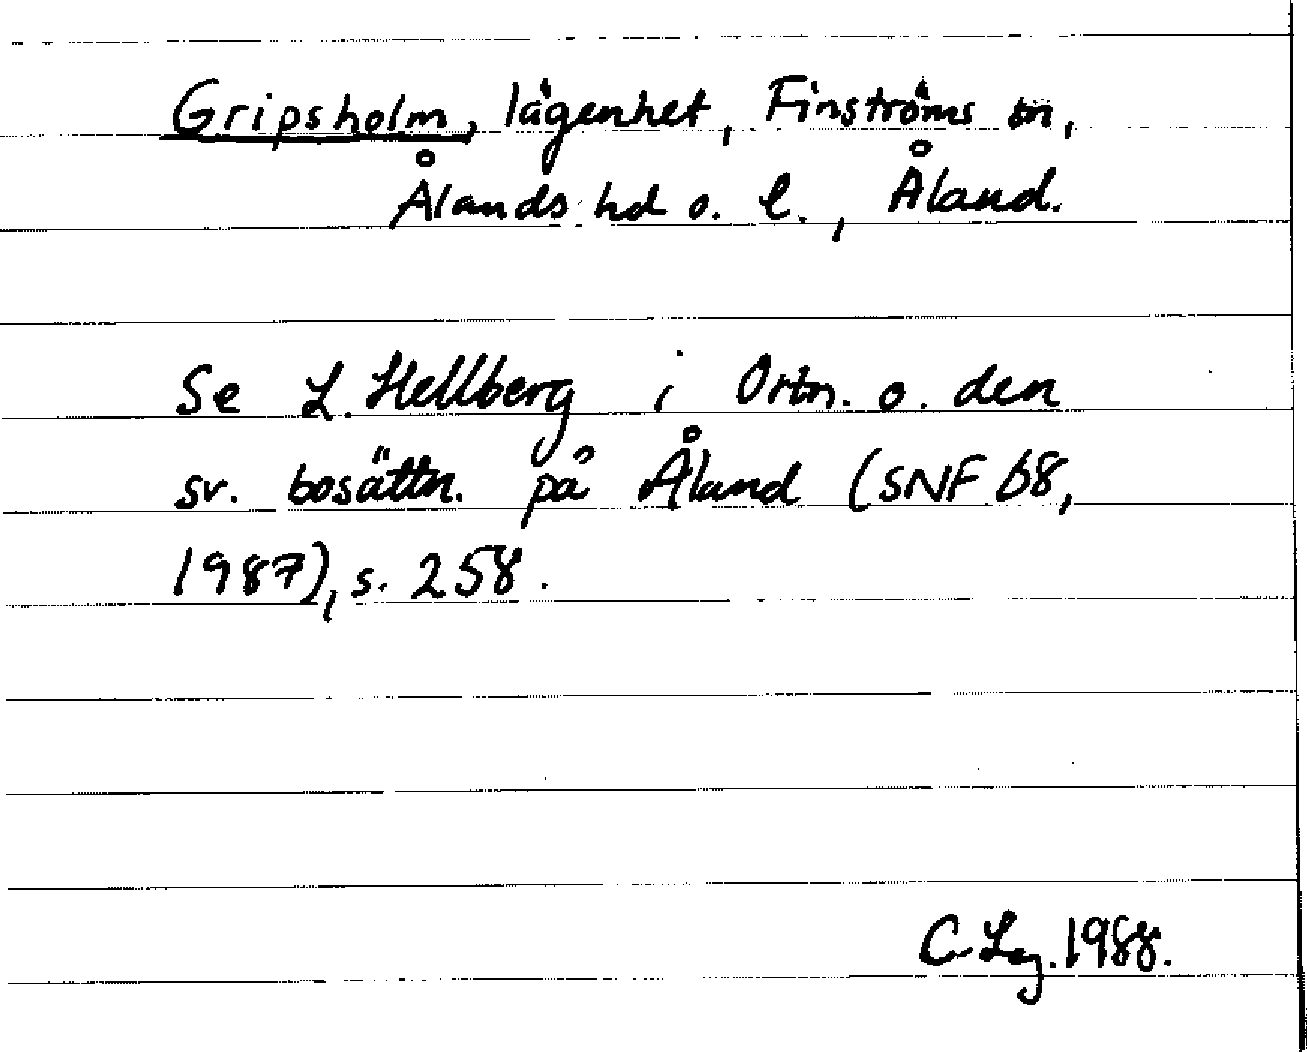 Gripsholm, lägenhet, Finströms sn,
Ålands hd o. l., Åland.
Se L. Hellberg i Ortn. o. den
sv. bosättn. på Åland (SNF 68,
1987), s. 258.
C. 1988.